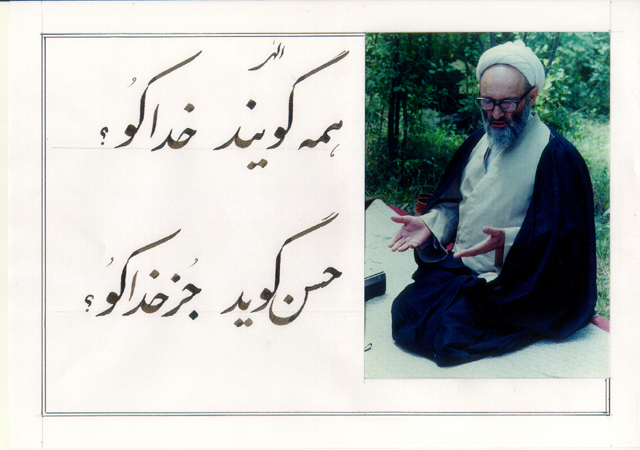 الهی
همه گویند خدا کوُ؟
حسن گوید جُز خدا کوُ؟